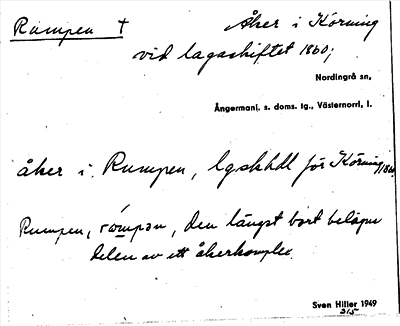 Rumpen † Åker i Körning
vid lagaskiftet 1860;
Nordingrå sn,
Ångermanl. s. doms. tg., Västernorrl. l.
åker i Rumpen, lgskhdl för Körning 1860
Rumpen, rómpən, den längst bort belägna
delen av ett åkerkomplex.
Sven Hiller 1949
315